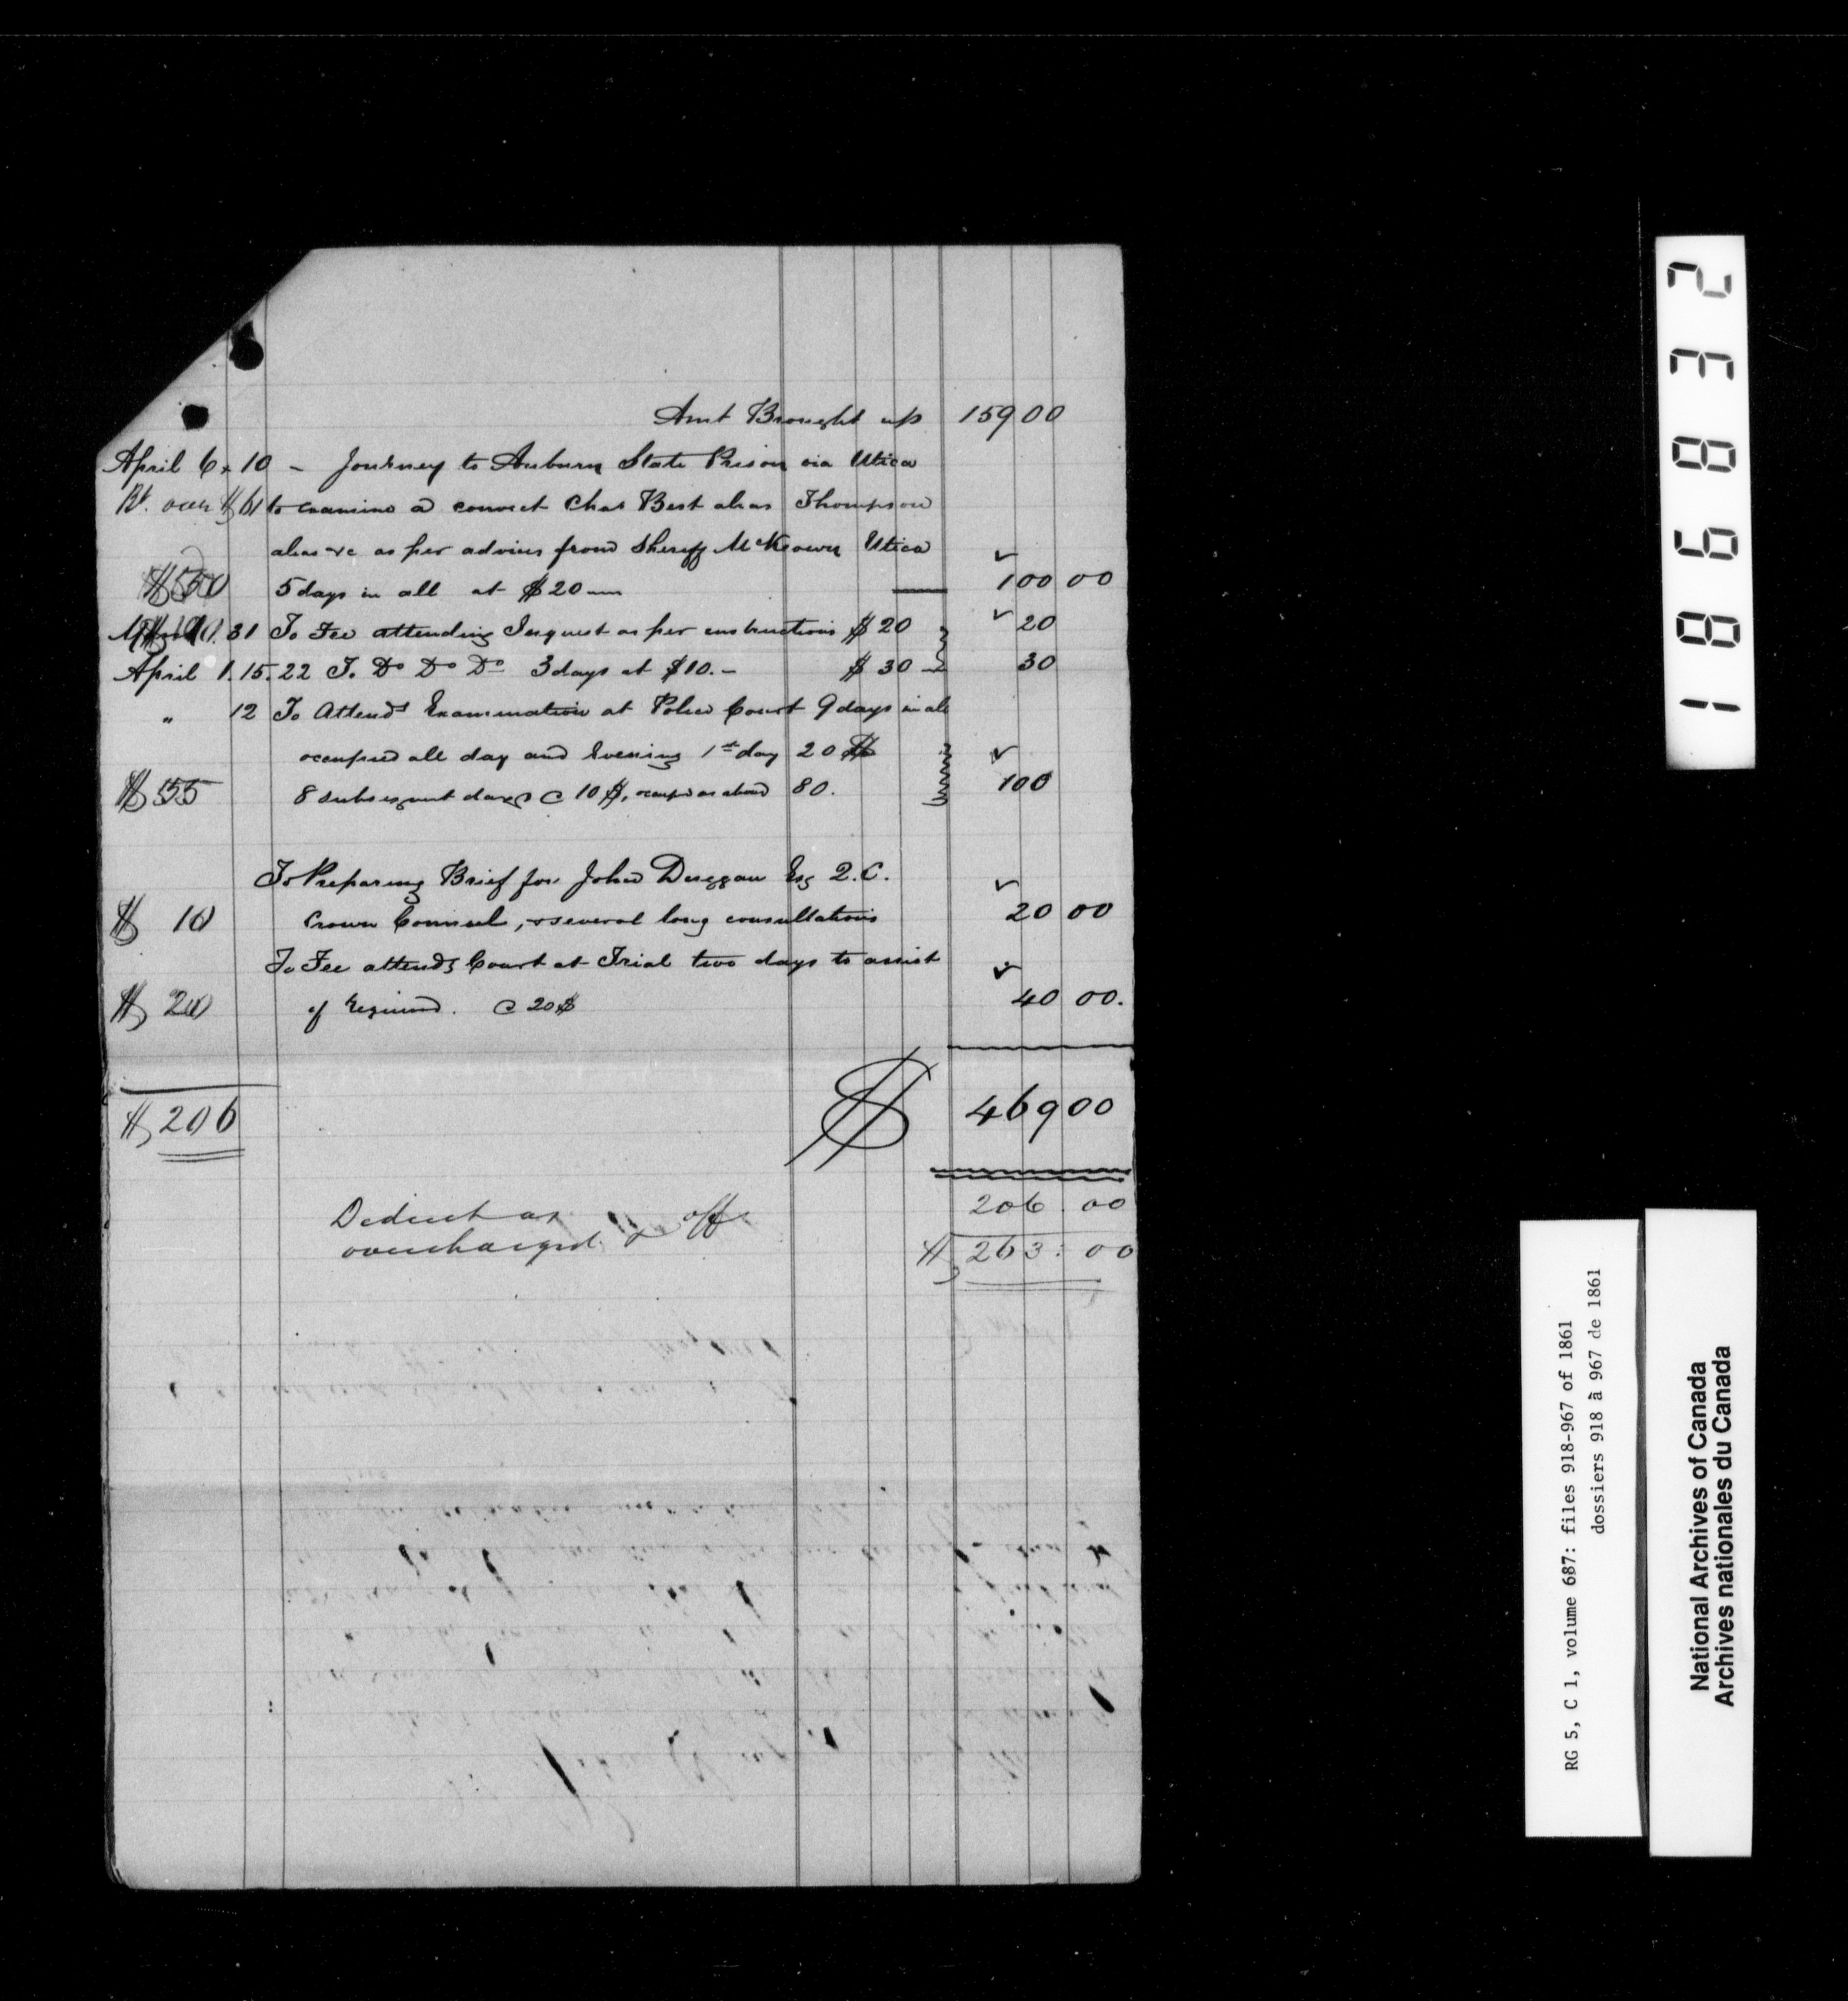 Amt Brought up 159 00
April 6 + 10 - Journey to Auburn State Prison via Utica
Bt. over $ 61 to examine a convict Chas Best alias Thompson
alias &c as per advices from Sheriff McKeown Utica
$ 50 5 days in all at $20 100 00
$ 10 31 To Fee attending Inquest as per instructions $ 20 20
April 1. 15. 22 To Do Do Do 3 days at $10.- $ 30 30
" 12 To Attendg Examination at Police Court 9 days in all
occupied all day and Evening 1st day 20 $
$ 55 8 subsequent days @ 10 $, occupd as above 80. 100
To Preparing Brief for John Duggan Esq Q.C.
$ 10 Crown Counsel, & several long consultations 20 00
To Fee attendg Court at Trial two days to assist
$ 20 if required. @ 20 $ 40 00.
$ 206 $ 469 00
Deduct as off 206 . 00
overcharged. $ 263 : 00
186832
RG 5, C 1, volume 687: files 918-967 of 1861
dossiers 918 à 967 de 1861
National Archives of Canada
Archives nationales du Canada